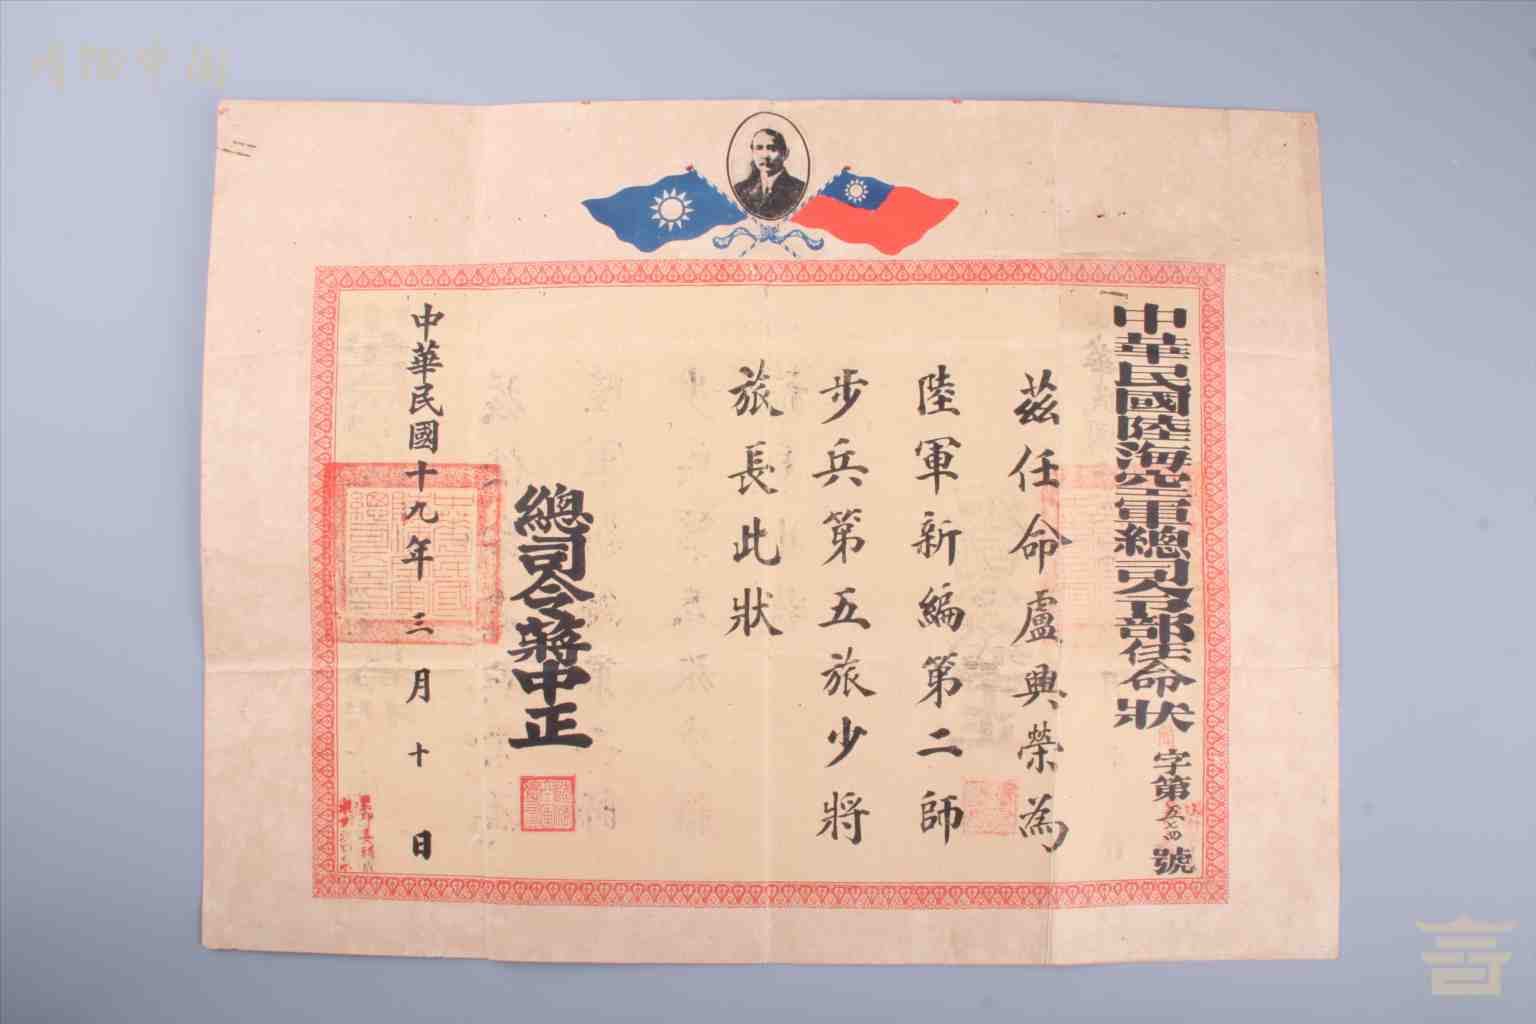 中華民國陸海空軍總司令部任命狀
字第五七四號
茲任命盧興榮為
陸軍新編第二師
步兵第五旅少將
旅長此狀
總司令蔣中正
中華民國十九年三月十日